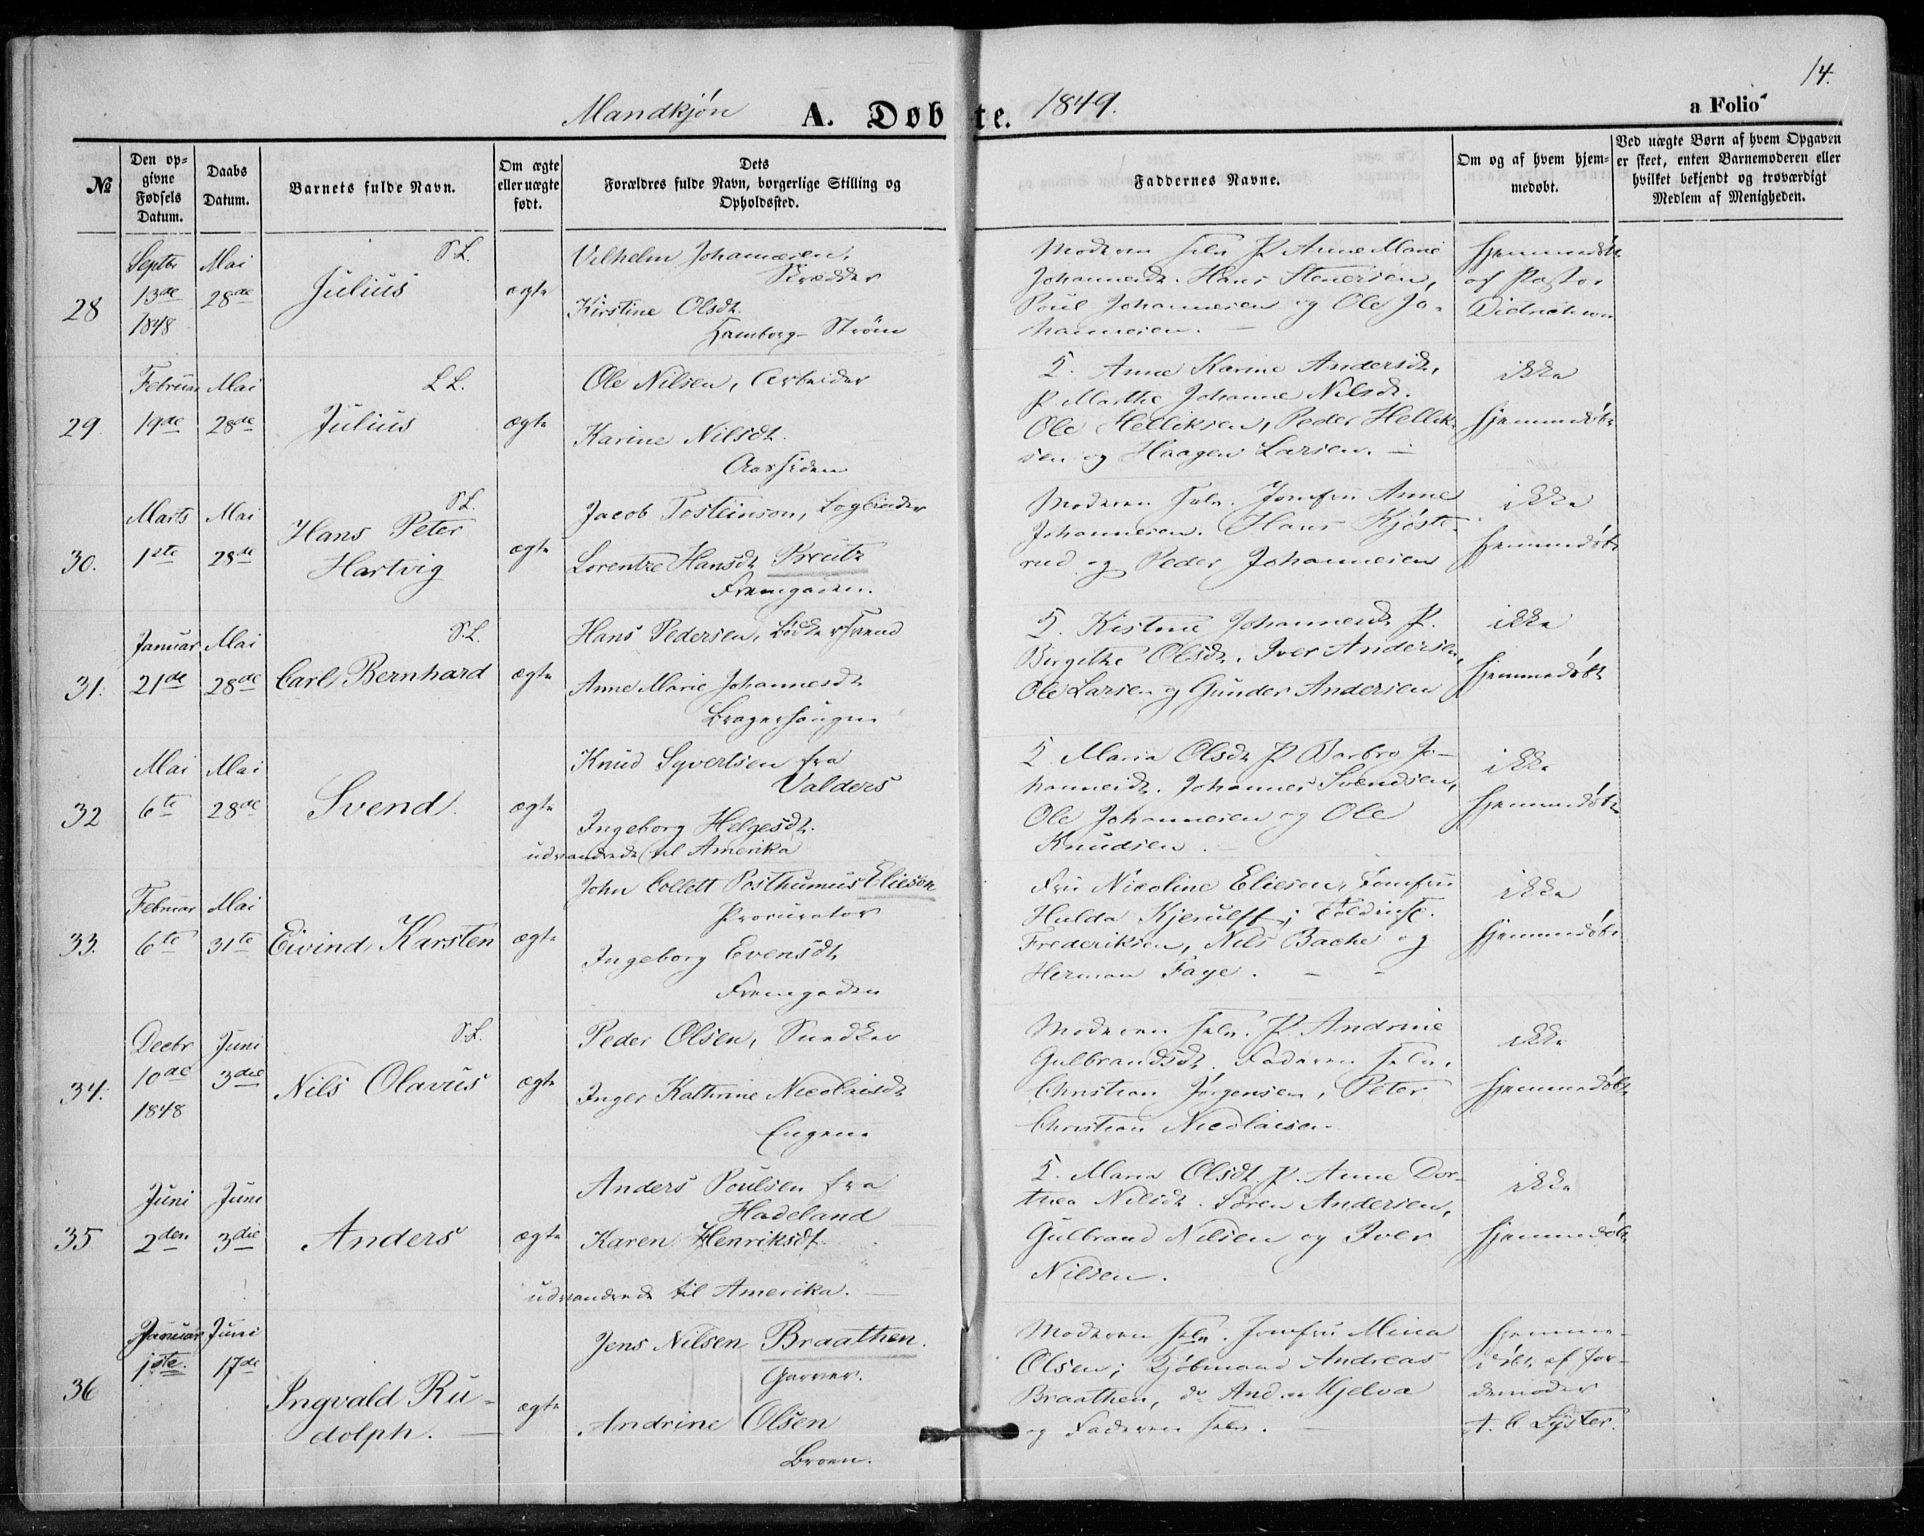 14.
Mandkjøn A. Døbte. 1849. a Folio
№
Den op-
givne
Fødsels
Datum.
Daabs
Datum.
Barnets fulde Navn.
Om ægte
eller uægte
født.
Dets
Forældres fulde Navn, borgerlige Stilling og
Opholdssted.
Faddernes Navne.
Om og af hvem hjem-
medøbt.
Ved uægte Børn af hvem Opgaven
er skeet, enten Barnemoderen eller
hvilket bekjendt og troværdigt
Medlem af Menigheden.
28
Septbr
13de
1848
Mai
28de
S.L.
Julius
ægte
Vilhelm Johannesen,
Skrædder
Kirstine Olsdt.
Strøm
Moderen selv P Anne Marie
Johannesdt. Hans Stenersen,
Poul Johannesen og Ole Jo-
hannesen.
hjemmedøbt
af Pastor
Didrichsen
29.
Februar
19de
Mai
28de
L L.
Julius
ægte
Ole Nilsen, Arbeider
Karine Nilsdt.
Aassiden
Anne Karine Andersdt,
P Marthe Johanne Nilsdt.
Ole Helliksen, Peder Hellik-
sen og Haagen Larsen. —
ikke
hjemmedøbt
30.
Marts
1ste
Mai
28de
S.L.
Hans Peter
Hartvig
ægte
Jacob Tosteinson, Bogbinder
Lorentze Hansdt Preutz
Fremgaden.
Moderen selv. Jomfru Anne
Johannesen. Hans Kjøste-
rud og Peder Johannesen
ikke
hjemmedøbt
31.
Januar
21de
Mai
28de
S.L.
Carl Bernhard
ægte
Hans Pedersen, Bødkersvend
Anne Marie Johannesdt
Bragerhougen
Kistine Johannesdt P.
Birgithe Olsdt. Iver Andersen,
Ole Larsen og Gunder Andersen
ikke
hjemmedøbt
32
Mai
6te
Mai
28de
Svend.
ægte
Knud Syvertsen fra
Valders
Ingeborg Helgesdt.
udvandrede til Amerika
Maria Olsdt P Barbro Jo-
hannesdt. Johannes Svendsen,
Ole Johannesen og Ole
Knudsen.
ikke
hjemmedøbt
33.
Februar
6te
Mai
31te
Eivind Karsten
ægte
John Collett Posthumus Elieson
Procurator
Ingeborg Evensdt,
Fremgaden
Fru Nicoline Eliesen, Jomfru
Hulda Kjerulff;
Frederiksen, Nils Bache og
Herman Faye. — —
ikke
hjemmedøbt
34.
Decbr
10de
1848
Juni
3die
S.L.
Nils Olavus
ægte
Peder Olsen, Snedker
Inger Kathrine Nicolaisdt
Engene
Moderen selv. P. Andrine
Gulbrandsdt. Faderen selv.
Christian Jørgensen, Peter
Christian Nicolaisen
ikke
hjemmedøbt
35
Juni
2den
Juni
3die
Anders
ægte
Anders Poulsen fra
Hadeland
Karen Henriksdt.
udvandrede til Amerika. —
Maria Olsdt. P. Anne Dor-
thea Nilsdt. Søren Andersen,
Gulbrand Nilsen og Iver
Nilsen.
ikke
hjemmedøbt
36
Januar
1ste
Juni
17de
Ingvald Ru-
dolph. —
ægte
Jens Nilsen Braathen.
Garver.
Andrine Olsen
Broen.
Moderen selv. Jomfru Mina
Olsen; Kjøbmand Andreas
Braathen, do And. Hjelva
og Faderen selv. —
hjemme-
døbt af Jor-
demoder
A. C Lyster.